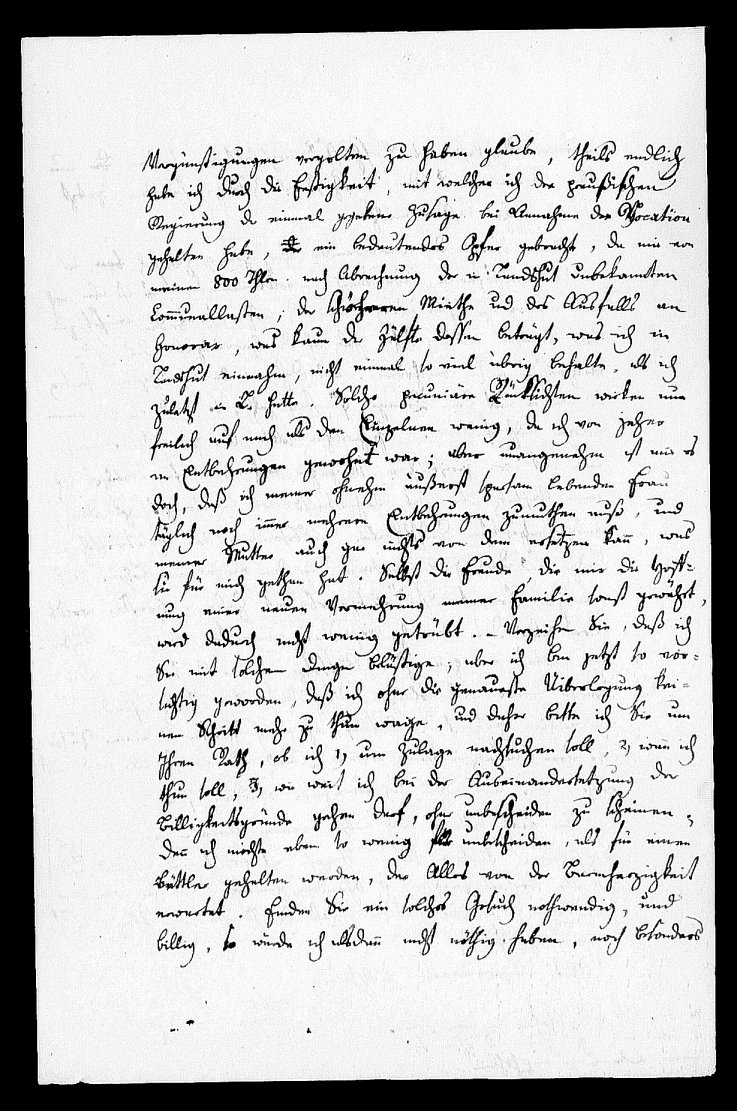 Vergünstigungen vergolten zu haben glaube, theils endlich
habe ich durch die Festigkeit, mit welcher ich der preußischen
Regierung die einmal gegebene Zusage bei Annahme der Vocation
gehalten habe, ein bedeutendes Opfer gebracht, da mir von
meinen 800 Thlrn. nach Abrechnung der in Landshut unbekannten
Communallasten, der höheren Miethe und des Ausfalls an
Honorar, was kaum die Hälfte dessen beträgt, was ich in
Landshut einnahm, nicht einmal so viel übrig behalte, als ich
zuletzt in L. hatte. Solche pecuniäre Rücksichten wirken nun
freilich auf mich als den Einzelnen wenig, da ich von jeher
an Entbehrungen gewohnt war; aber unangenehm ist mir es
doch, daß ich meiner ohnehin äußerst sparsam lebenden Frau
täglich noch immer mehrere Entbehrungen zumuthen muß, und
meiner Mutter auch gar nichts von dem ersetzen kann, was
sie für mich gethan hat. Selbst die Freude, die mir die Hoff-
nung einer neuen Vermehrung meiner Familie sonst gewährt,
wird dadurch nicht wenig getrübt. – Verzeihen Sie, daß ich
Sie mit solchen Dingen belästige; aber ich bin jetzt so vor-
sichtig geworden, daß ich ohne die genaueste Überlegung kei-
nen Schritt mehr zu thun wage, und daher bitte ich Sie um
Ihren Rath, ob ich 1, um Zulage nachsuchen soll, 2, wann ich
thun soll, 3, wie weit ich bei der Auseinandersetzung der
Billigkeitsgründe gehen darf, ohne unbescheiden zu scheinen,
denn ich möchte eben so wenig für unbescheiden, als für einen
Bettler gehalten werden, der Alles von der Barmherzigkeit
erwartet. Finden Sie ein solches Gesuch nothwendig, und
billig, so würde ich alsdann nicht nöthig haben, noch besonders